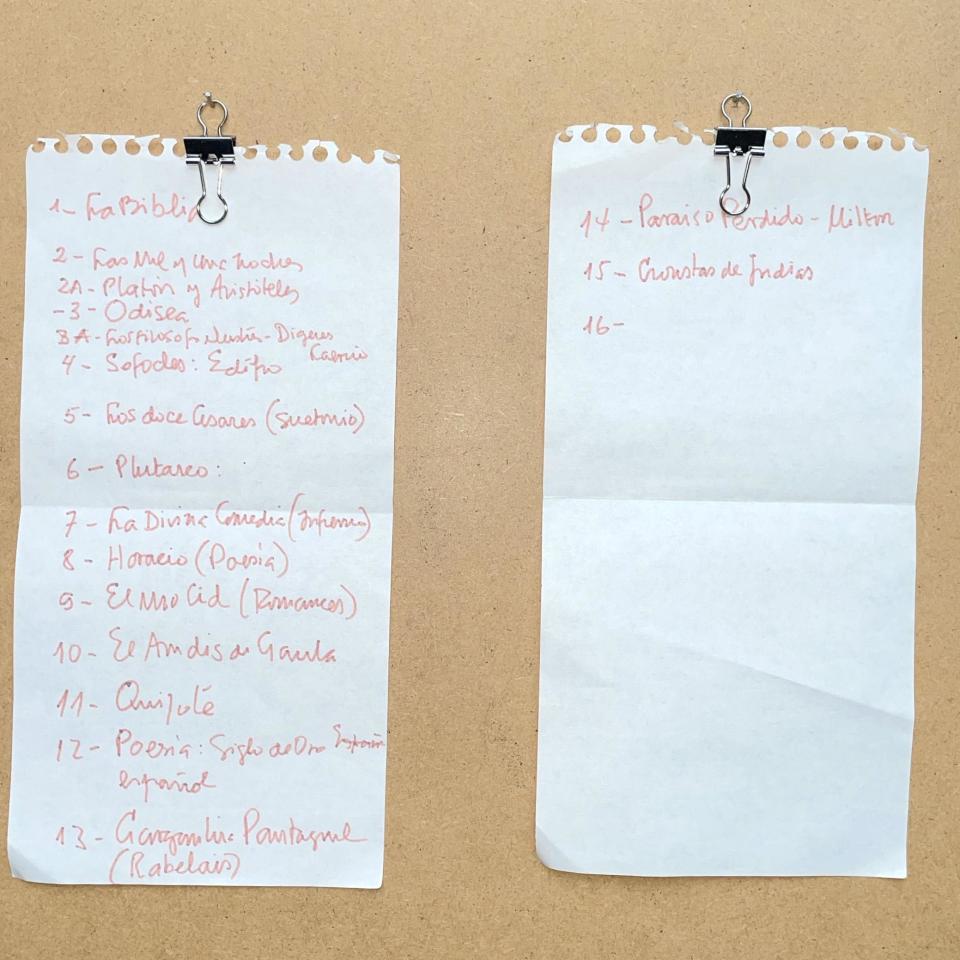 1- La Biblia
2- Las Mil y una noches
2A- Platón y Aristóteles
-3- Odisea
3A- Los filosofos - Diógenes
Laercio
4- Sofocles: Edipo
5- Los doce Césares (Suetonio)
6- Plutarco:
7- La Divina Comedia (Infierno)
8- Horacio (Poesía)
9- El Mio Cid (Romances)
10- El Amadis de Gaula
11- Quijote
12- Poesía: Siglo de Oro
español
13- Gargantua Pantagruel
(Rabelais)
14- Paraiso Perdido - Milton
15- Cronistas de Indias
16-